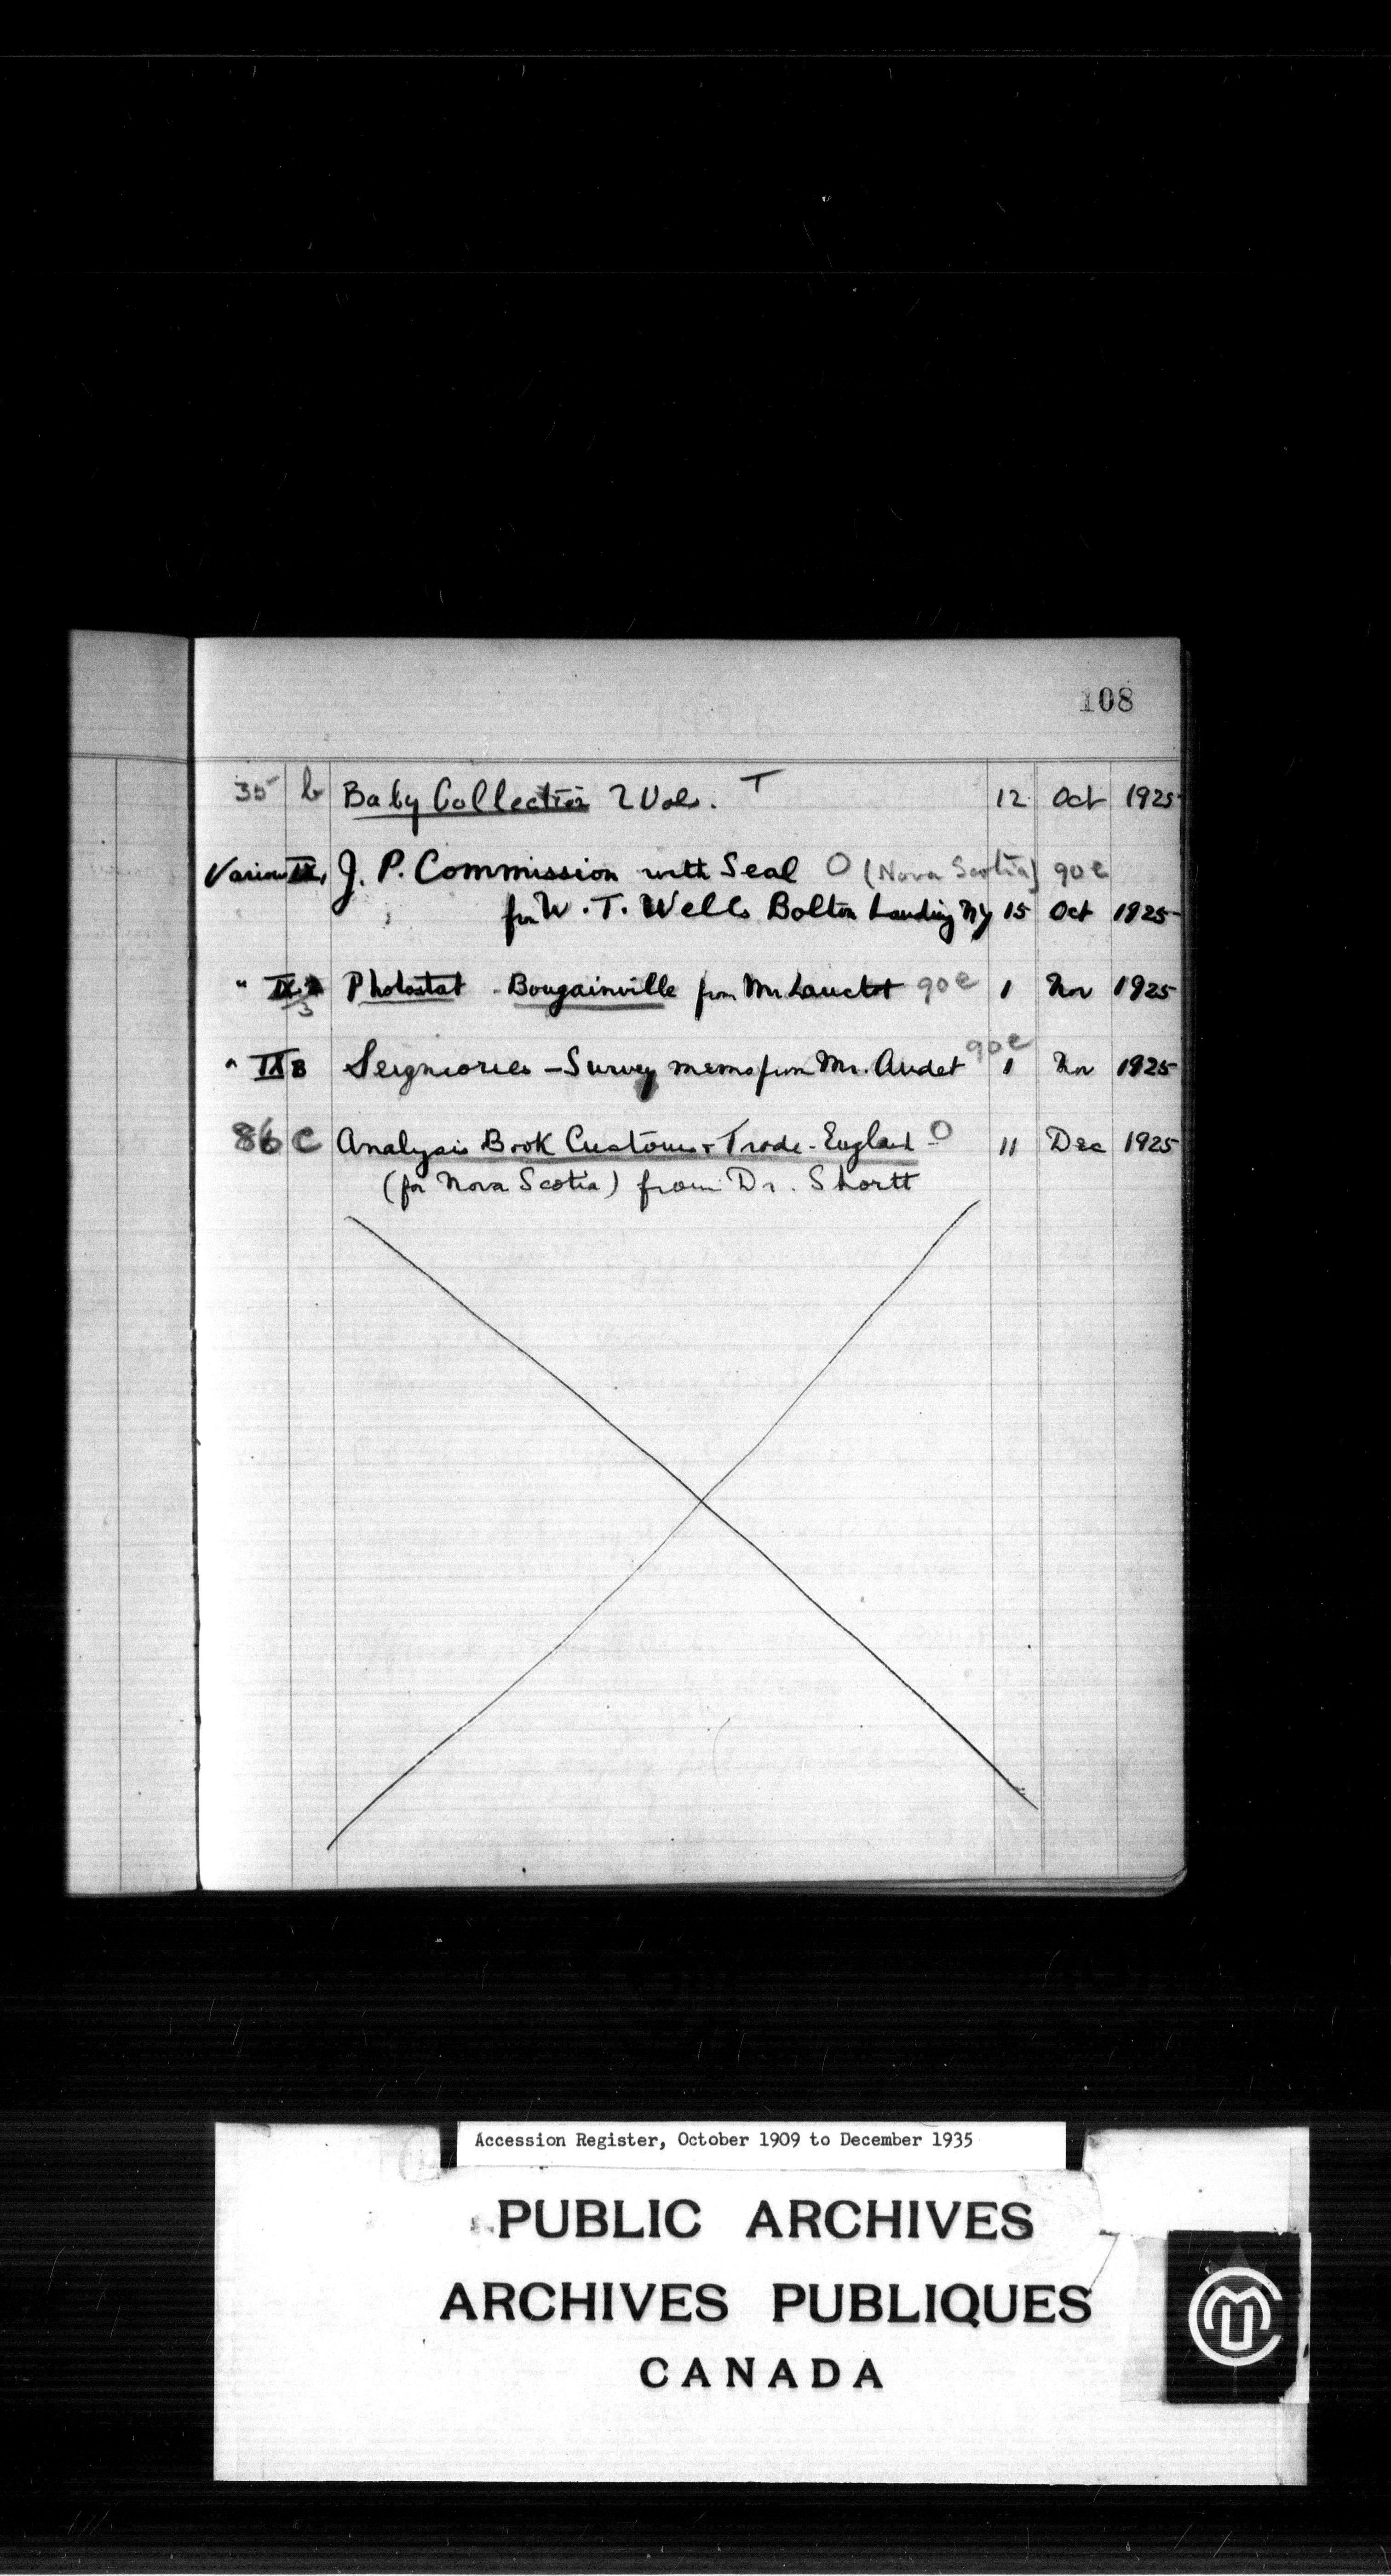 108
35 b Baby Collection 2 Vols. T 12 Oct 1925
Various IX, J. P. Commission with Seal O (Nova Scotia) 90e
from W. T. Wells Bolton Landing NY 15 Oct 1925
" IX 3 Photostat - Bougainville from Mr Lanctot 90e 1 Nov 1925
" IX B Seigniories - Survey memo from Mr. Audet 90e 1 Nov 1925
86 C Analysis Book Customs & Trade - England - O 11 Dec 1925
(for Nova Scotia) from Dr. Shortt
Accession Register, October 1909 to December 1935
PUBLIC ARCHIVES
ARCHIVES PUBLIQUES
CANADA